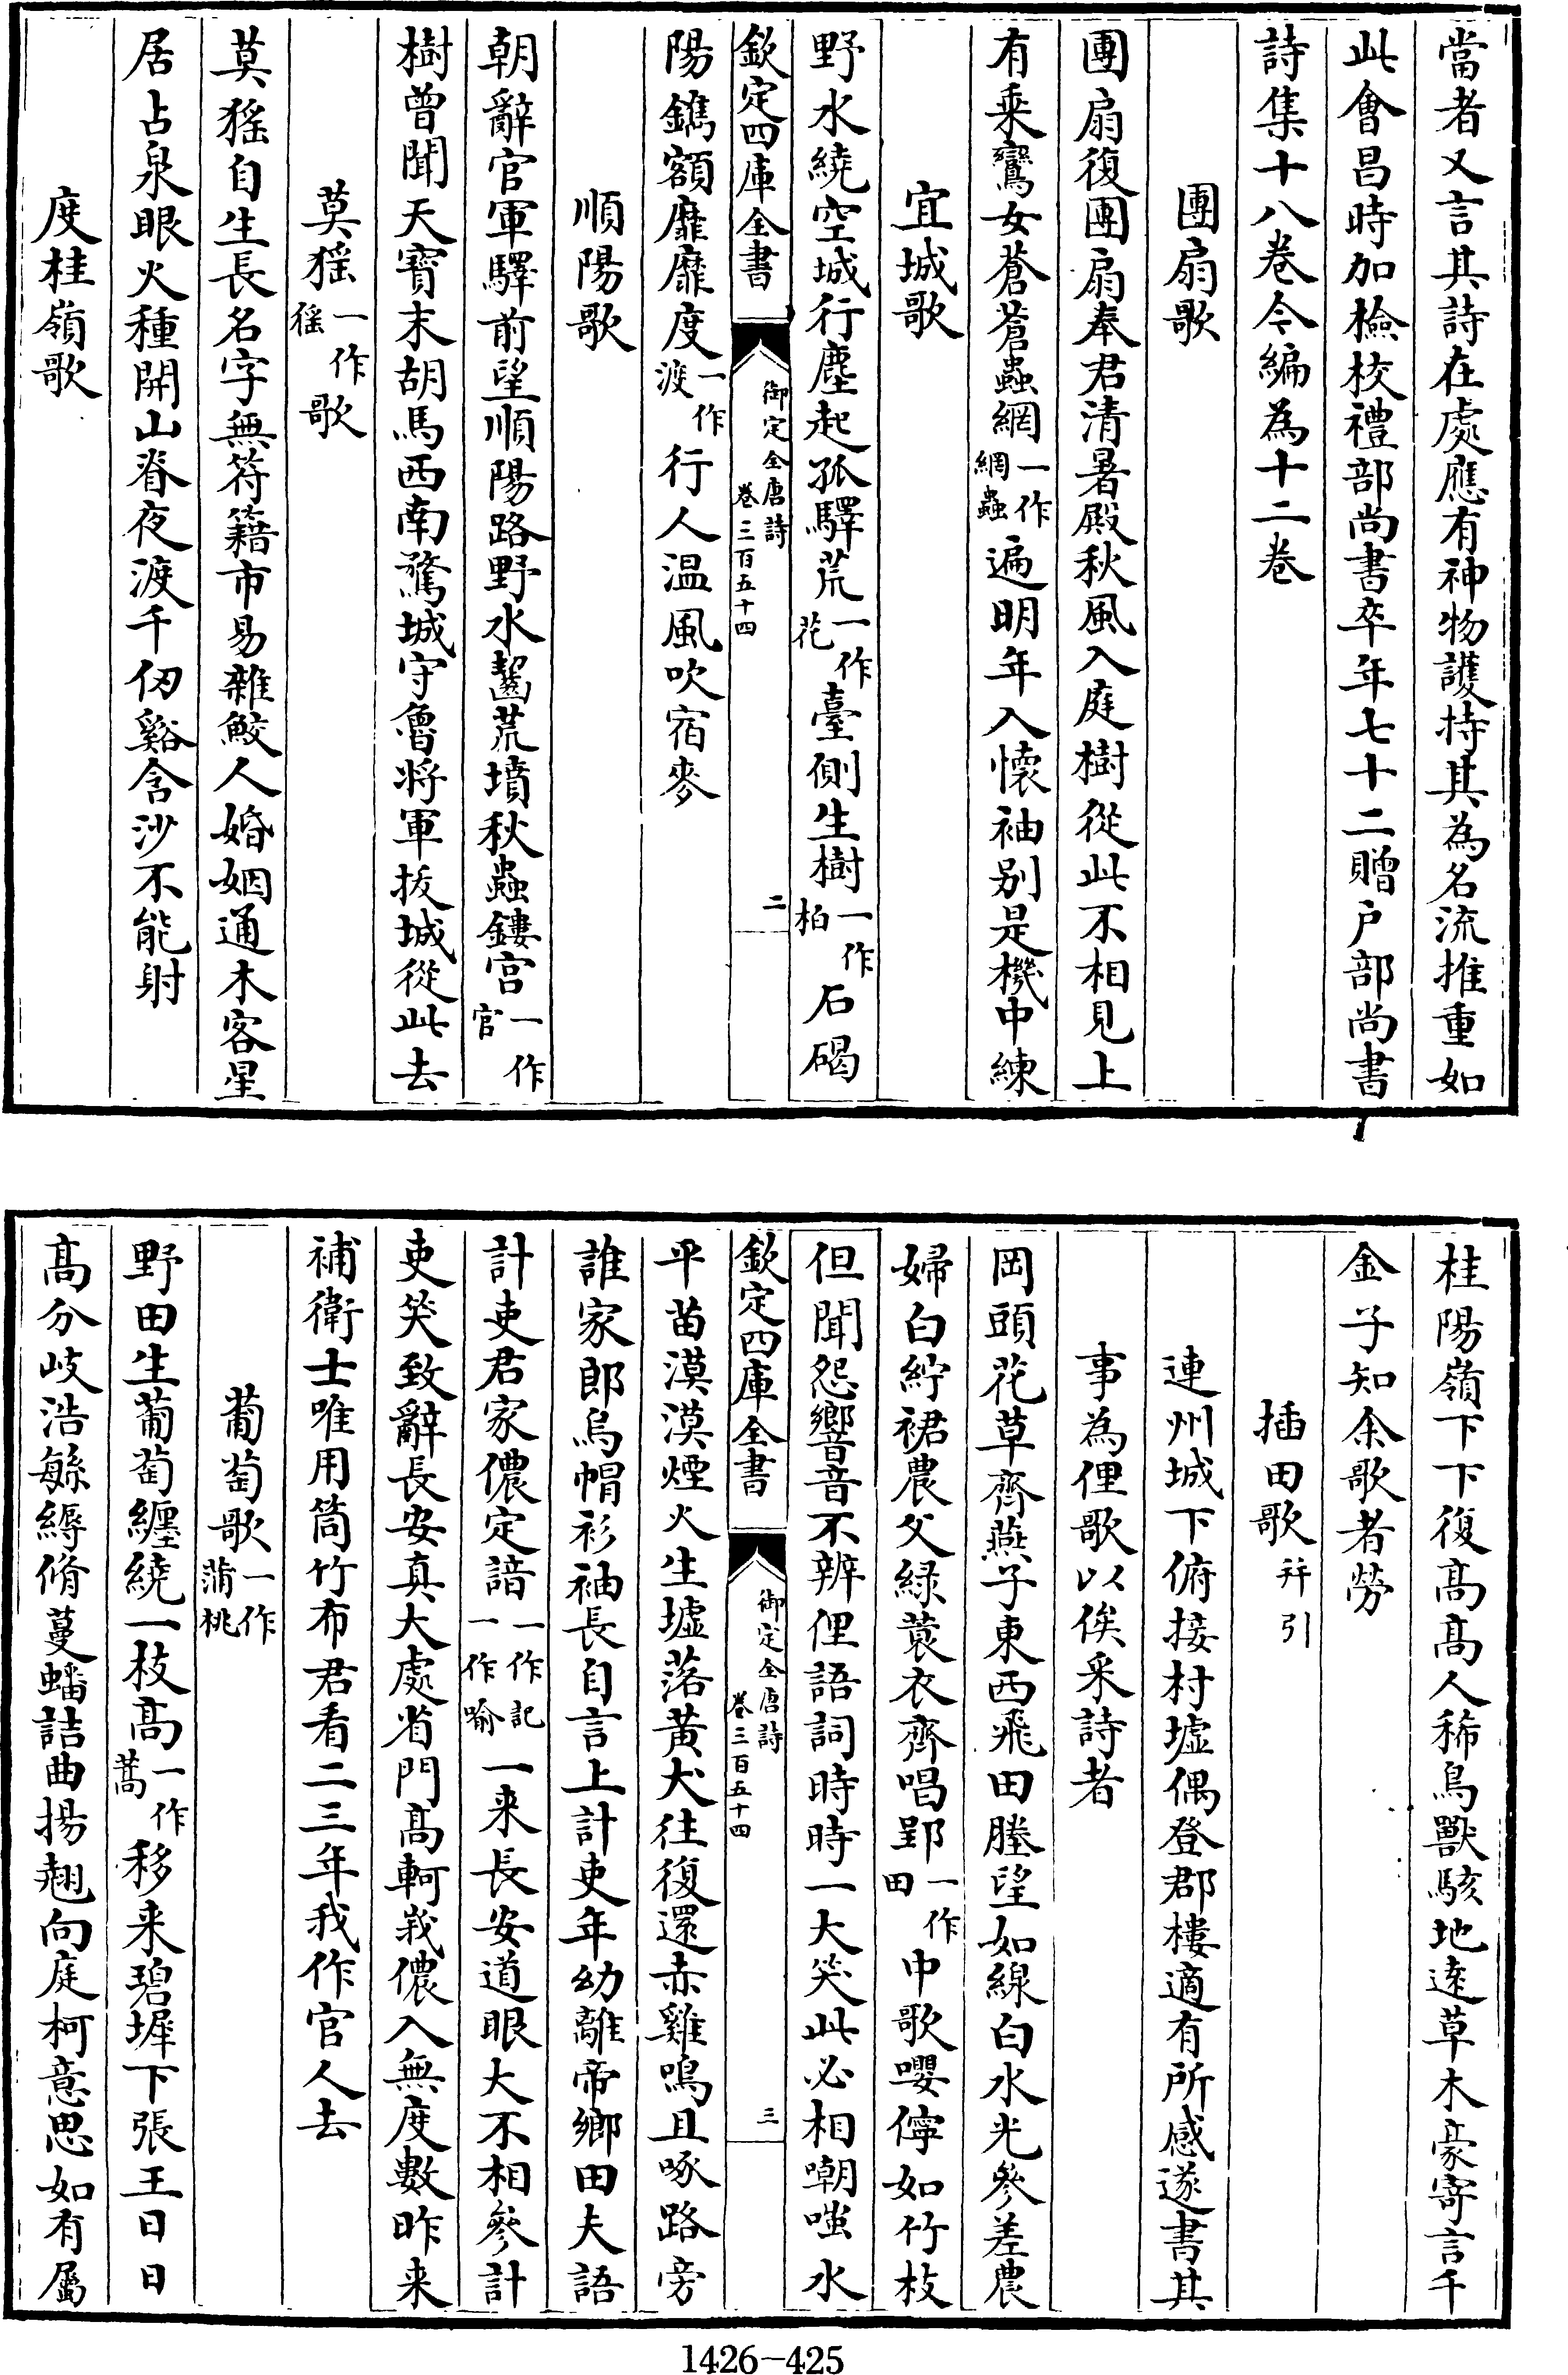 當者又言其詩在處應有神物護持其為名流推重如
此會昌時加檢校禮部尚書卒年七十二贈户部尚書
詩集十八卷今編為十二卷
團扇歌
團扇復團扇奉君清暑殿秋風入庭樹從此不相見上
有乘鸞女蒼蒼蟲網一作網蟲遍明年入懷袖别是機中練
宜城歌
野水繞空城行塵起孤驛荒一作花臺側生樹一作柏石碣
欽定四庫全書 御定全唐詩 卷三百五十四 二
陽鐫額靡靡度一作渡行人温風吹宿麥
順陽歌
朝辭官軍驛前望順陽路野水齧荒墳秋蟲鏤宫一作官
樹曾聞天寶末胡馬西南騖城守魯將軍拔城從此去
莫猺一作徭歌
莫猺自生長名字無符籍市易雜鮫人婚姻通木客星
居占泉眼火種開山脊夜渡千仞谿含沙不能射
度桂嶺歌
桂陽嶺下下復髙髙人稀鳥獸駭地逺草木豪寄言千
金子知余歌者勞
插田歌并引
連州城下俯接村墟偶登郡樓適有所感遂書其
事為俚歌以俟采詩者
岡頭花草齊燕子東西飛田塍望如線白水光參差農
婦白紵裙農父緑蓑衣齊唱郢一作田中歌嚶儜如竹枝
但聞怨響音不辨俚語詞時時一大笑此必相嘲嗤水
欽定四庫全書 御定全唐詩 卷三百五十四 三
平苗漠漠煙火生墟落黄犬往復還赤雞鳴且啄路旁
誰家郎烏帽衫袖長自言上計吏年幼離帝鄉田夫語
計吏君家儂定諳一作記一作喻一来長安道眼大不相參計
吏笑致辭長安真大處省門髙軻峩儂入無度數昨来
補衛士唯用筒竹布君看二三年我作官人去
葡萄歌一作蒲桃
野田生葡萄纒繞一枝髙一作蒿移来碧墀下張王日日
髙分岐浩繁縟脩蔓蟠詰曲揚翹向庭柯意思如有屬
1426-425